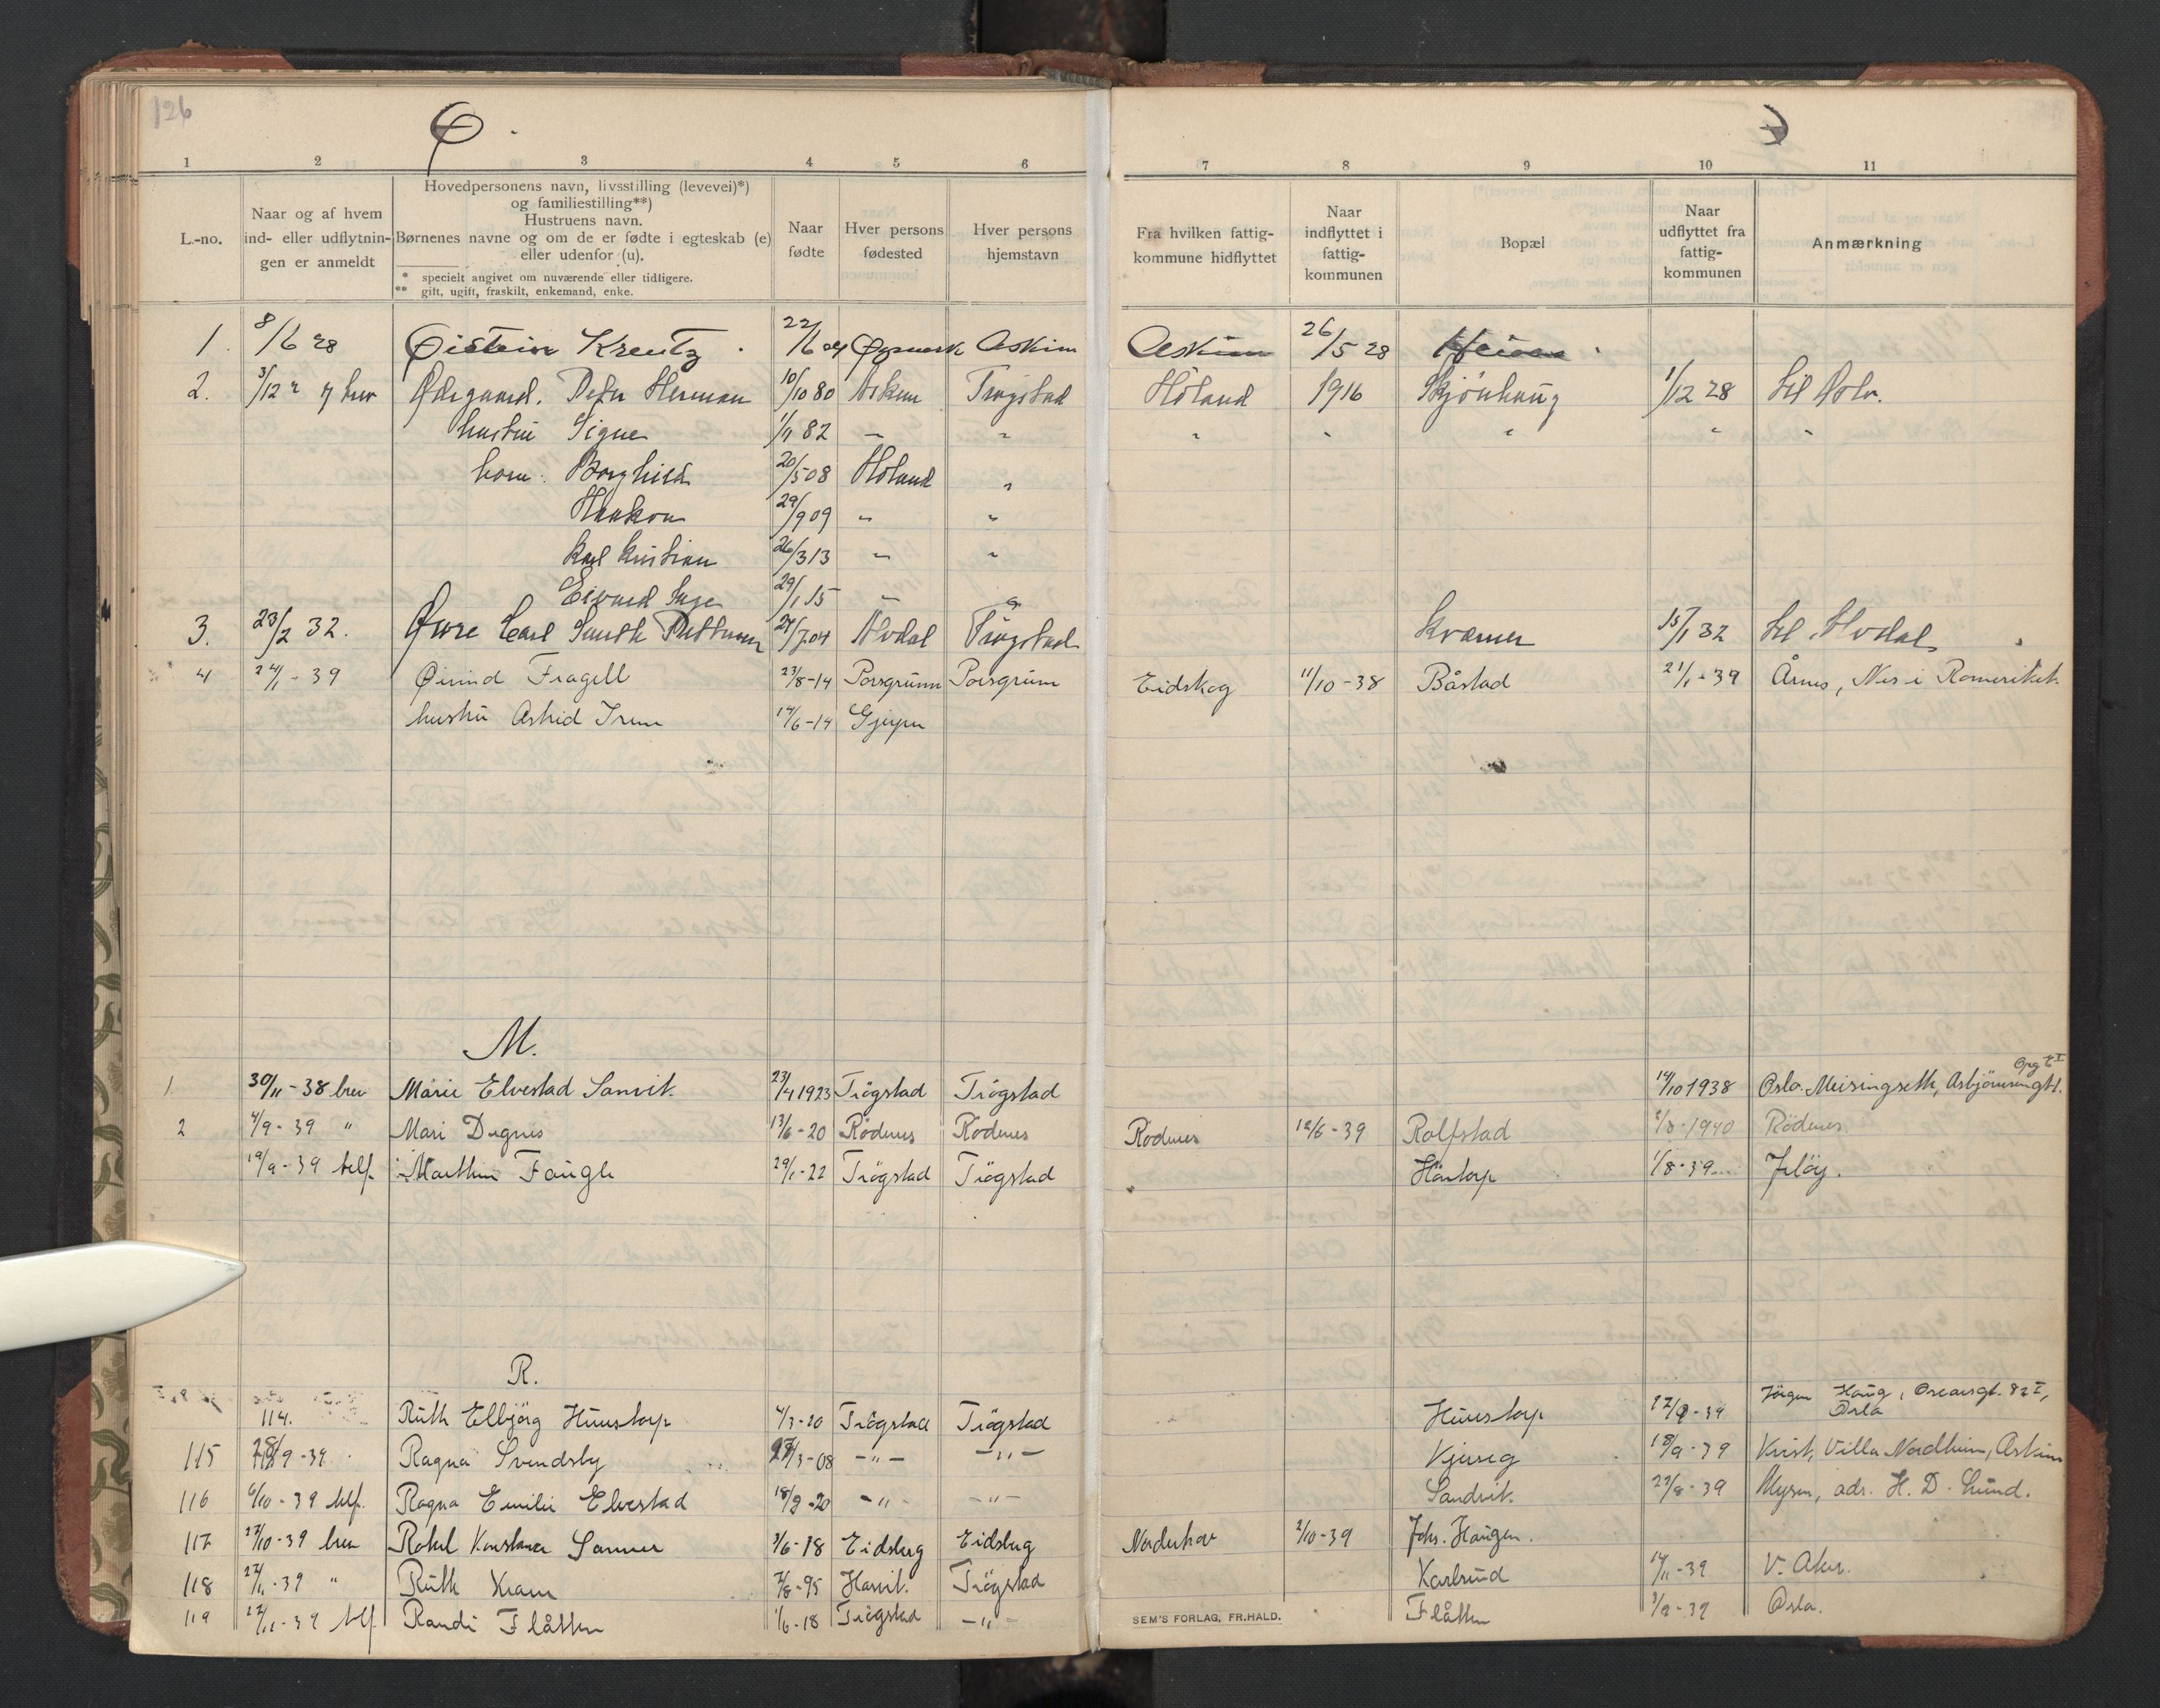 126
Ø.
Ø
1 2 3 4 5 6 7 8 9 10 11
L.-no.
Naar og af hvem ind- eller udflytnin-gen er anmeldt
Hovedpersonens navn, livsstilling (levevei)*)
og familiestilling**)
Hustruens navn.
Børnenes navne og om de er fødte i egteskab (e)
eller udenfor (u).
* specielt angivet om nuværende eller tidligere.
** gift, ugift, fraskilt, enkemand, enke.
Naar fødte
Hver persons fødested
Hver persons hjemstavn
Fra hvilken fattig-kommune hidflyttet
Naar indflyttet i fattig-kommunen
Bopæl
Naar udflyttet fra fattig-kommunen
Anmærkning
1. 8/6 28 Øistein Kreutz. 22/6 04 Askim Askim 26/5 28
2. 3/12 Ødegaard. Peder Herman 10/10 80 Askim Trøgstad Höland 1916 Skjönhaug 1/12 28 til Oslo.
hustru Signe 1/11 82 - " " " " " "
barn: Borghild 20/5 08 Höland "
Haakon 29/9 09 " "
Karl Kristian 26/3 13 " "
Eivind Inge 29/1 15 " "
3. 23/2 32. Øvre Carl 27/7 04 Alvdal Trøgstad Kramer 15/1 32 til Alvdal
4 24/1 - 39 Øivind Fragell 23/8-14 Porsgrunn Porsgrunn Eidskog 11/10-38 Båstad 21/1-39 Årnes, Nes i Romeriket
hustru Astrid Irene 14/6-14 Gjerpen
M.
1. 30/11-38 brev Marie Elvestad Sanvik 23/4 1923 Trögstad Trögstad 14/10 1938 Oslo. Meisingseth, Asbjörnsengt. Opg
2 4/9-39 " Mari Degnes 13/6-20 Rödenes Rödenes Rödenes 12/6-39 Rolfstad 1/8-1940 Rödenes
19/9-39 telf. Marthin Faugli 29/1-22 Trögstad Trögstad Håntorp 1/8-39 Jelöy.
R.
114. Ruth Elbjörg Huustorp 4/3-20 Trögstad Trögstad Huustorp 17/9-39 Jörgen Haug, Oscarsgt. 82 I, Oslo
115 28/9-39 Ragna Svendsby 27/3-08 -"- -"- Kjuseg 18/9-39 Kvist, Villa Nordheim, Askim
116 6/10-39 telf. Ragna Emilie Elvestad 18/9-20 -"- -"- Sandvik 22/8-39 Mysen, adr. H. D. Lund.
117 27/10-39 brev Rakel Konstanse Sanner 3/6-18 Eidsberg Eidsberg Norderhov 2/10-39 Johs. Haugen.
118 27/11-39 " Ruth Kram 7/8-95 Hasvik. Trögstad Karlsrud 14/11-39 V. Aker.
119 22/11-39 telf Randi Flåtten 1/6-18 Trögstad -"- Flåtten 3/9-39 Oslo.
SEM'S FORLAG, FR.HALD.